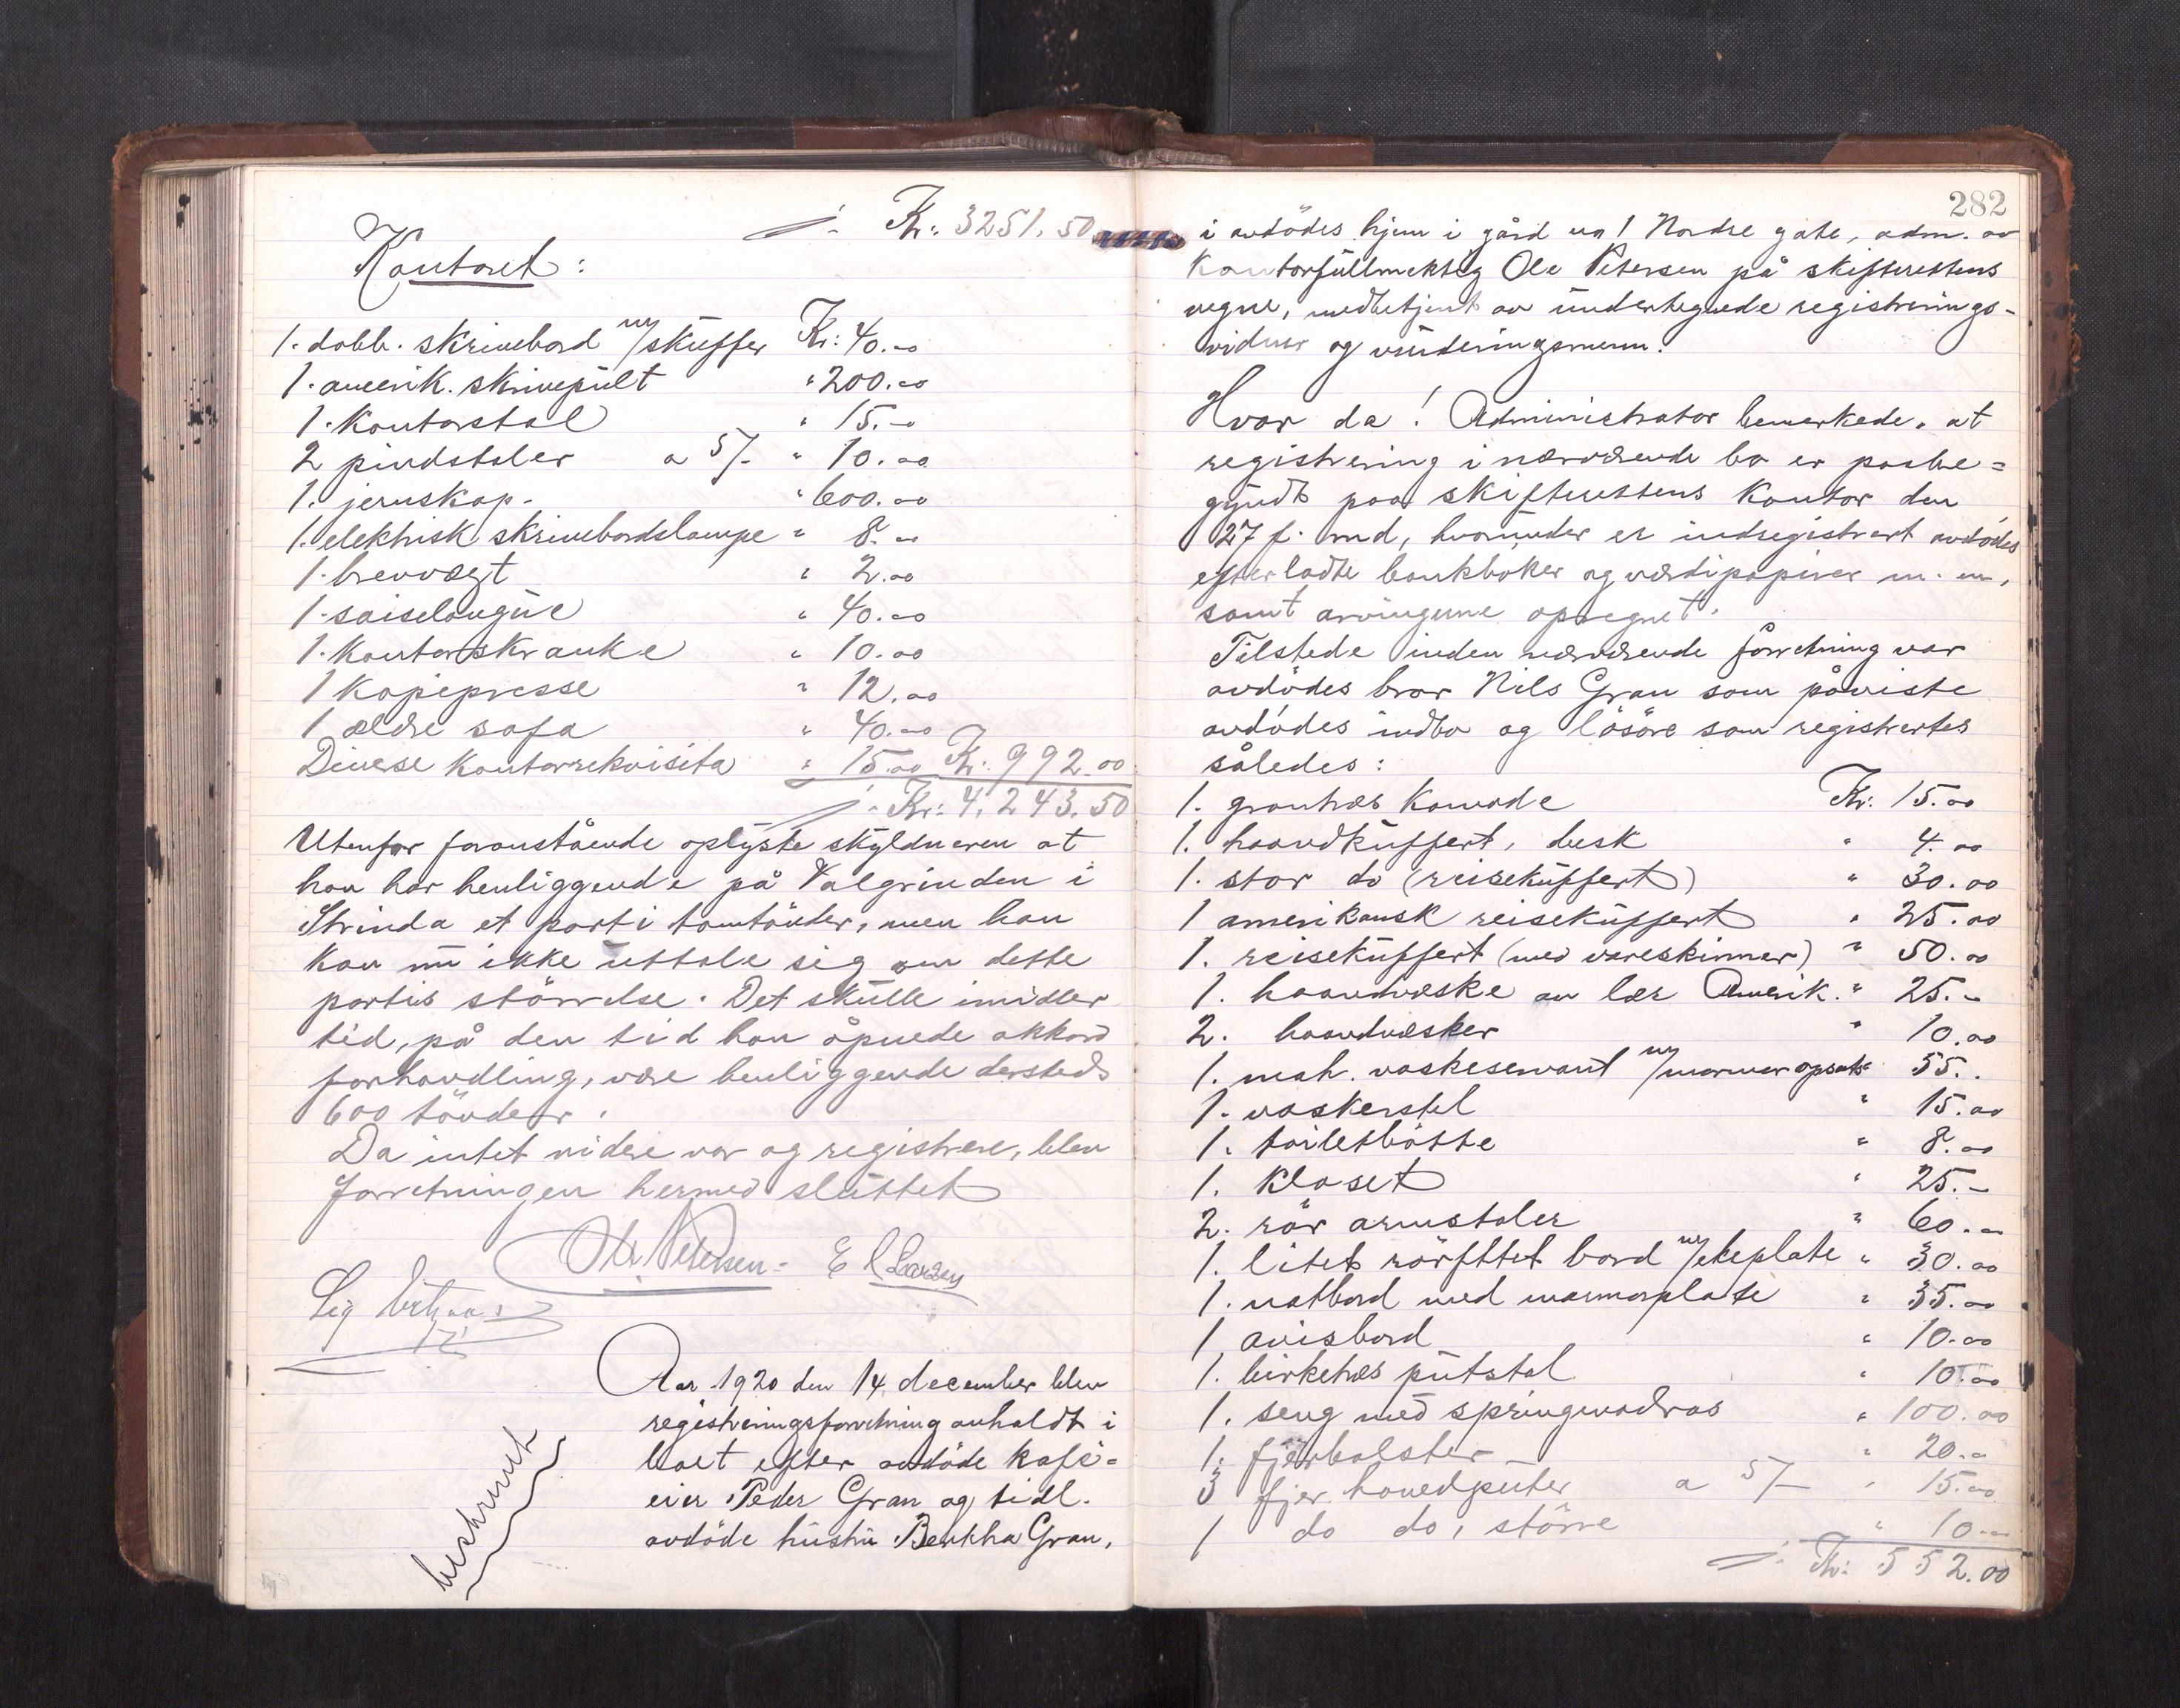 Kr: 3251.50
Kontoret:
1. dobb. skrivebord m/skuffer Kr: 40.00
1. amerik. skrivepult " 200.00
1. kontorstol " 15.-
2 pindstoler a 5/- " 10.00
1. jernskap. " 600.00
1. elektrisk skrivebordslampe " 8.00
1. brevvægt " 2.00
1. saiselongue " 40.00
1. kontorskranke " 10.00
1 kopiepresse " 12.00
1 ældre sofa " 40.00
Diverse kontorrekvisita " 15.00 Kr: 992.00
Kr: 4.243.50
Utenfor foranstående oplyste skyldneren at
han har henliggende på Valgrinden i
Strinda et parti tomtönder, men han
kan nu ikke uttale sig om dette
partis störrelse. Det skulle imidler
tid, på den tid han åpnede akkord
forhandling, være henliggende dersteds
600 tönder.
Da intet videre var og registrere, blev
forretningen hermed sluttet
Ole Petersen - E Larsen
Aar 1920 den 14 december blev
registreringsforretning anholdt i
boet efter avdöde kafé-
eier Peder Gran og tidl.
avdöde hustru Berntha Gran,
beskrevet
282
i avdödes hjem i gård no 1 Nordre gate, adm. av
Kontorfullmektig Ole Petersen på skifterettens
vegne, medbetjent av undertegnede registrerings-
vidner og vurderingsmenn.
Hvor da! Administrator bemerkede, at
registrering i nærværende bo er paabe=
gyndt paa skifterettens kontor den
27 f. md, hvorunder er indregistrert avdödes
efterladte bankböker og værdipapirer m. m,
samt arvingerne opregnet.
Tilstede under nærværende forretning var
avdödes bror Nils Gran som påviste
avdödes indbo og lösöre som registrertes
således:
1. grantræs komode Kr: 15.00
1. haandkuffert, dusk " 4.00
1. stor do (reisekuffert) " 30.00
1 amerikansk reisekuffert " 25.00
1. reisekuffert (med vareskinner) " 50.00
1. haandvæske av lær Amerik. " 25.-
2. haandvæsker " 10.00
1. mah. vaskeservant m/marmoropsats " 55..
1. vaskerstel " 15.00
1. toiletbötte " 8.00
1. kloset " 25.-
2. rör armstoler " 60.00
1. litet rörflttet bord m/ekeplate " 30.00
1. natbord med marmorplate " 35.00
1 avisbord " 10.00
1. birketræs putstol " 10.00
1. seng med springmadras " 100.00
1. fjærbolster " 20.00
3 fjer hovedputer a 5/- " 15.00
1 do do, större " 10.00
Kr: 552.00